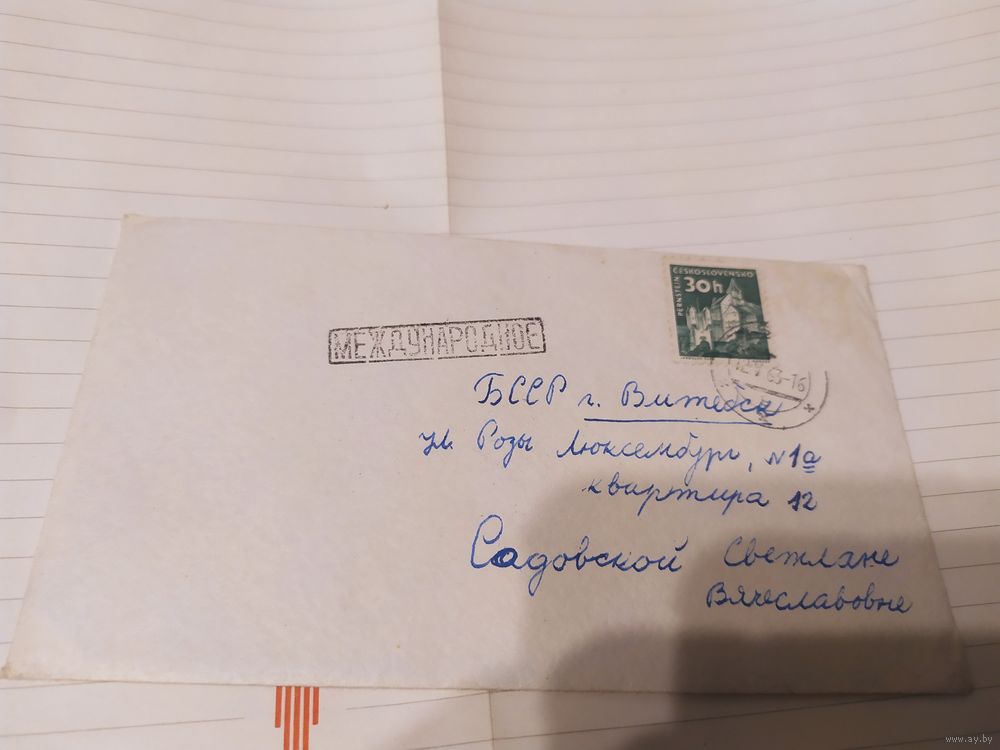 ČESKOSLOVENSKO
30h
PERNŠTEIN
МЕЖДУНАРОДНОЕ
12.V.63-16
БССР г. Витебск
ул. Розы Люксембург, N 1а
квартира 12
Садовской Светлане
Вячеславовне
www.ay.by